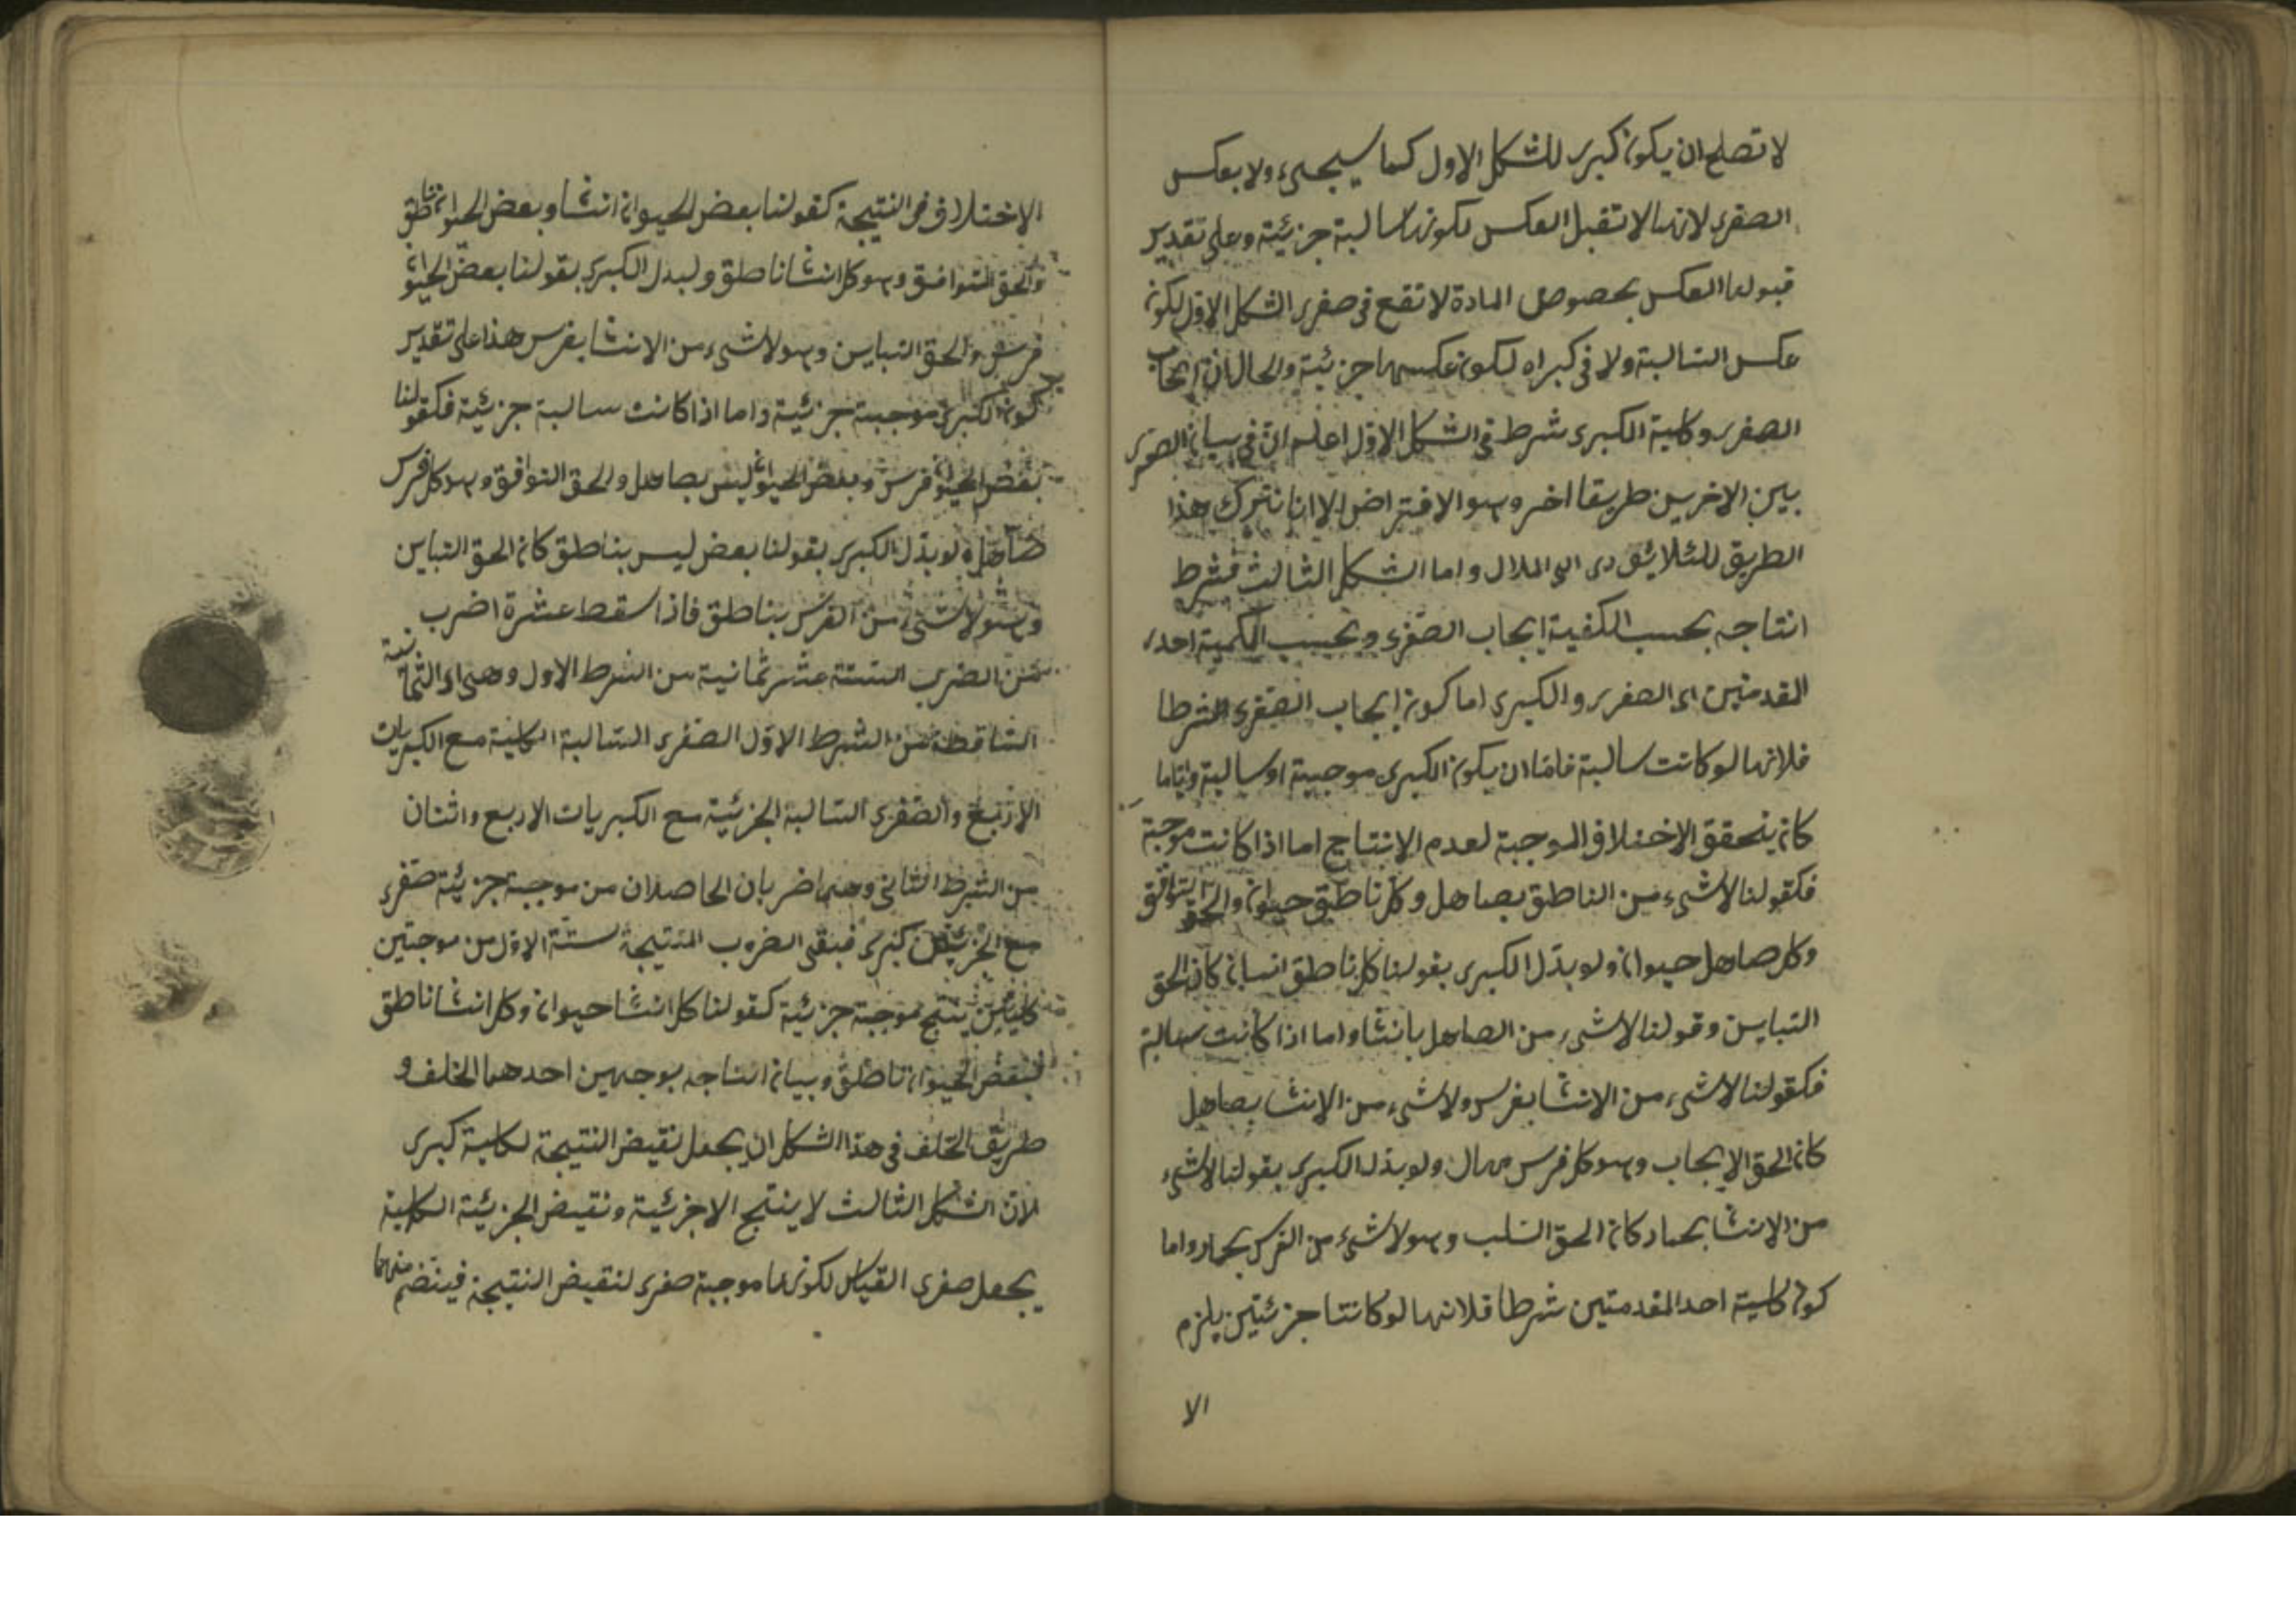 لا تصلح ان يكون كبرى للشكل الاول كما سيجىء ولا بعكس
الصغرى لانها لا تقبل العكس لكونها سالبة جزئية وعلى تقدير
قبولها العكس بخصوص المادة لا تقع فى صغرى الشكل الاول لكون
عكس السالبة ولا فى كبراه لكون عكسها جزئية والحال ان ايجاب
الصغرى وكلية الكبرى شرط فى الشكل الاول اعلم ان فى بيان الضرب
بين الاخرين طريقا اخر وهو الافتراض الا انا نترك هذا
الطريق للئلا يؤدى الى الملال واما الشكل الثالث فشرط
انتاجه بحسب الكفية ايجاب الصغرى وبحسب الكمية احد
المقدمتين اى الصغرى والكبرى اما كون ايجاب الصغرى شرطا
فلانها لو كانت سالبة فاما ان يكون الكبرى موجبة او سالبة واياما
كان يتحقق الاختلاف الموجبة لعدم الانتاج اما اذا كانت موجبة
فكقولنا لا شىء من الناطق بصاهل وكل ناطق حيوان والحق التوافق
وكل صاهل حيوان ولو بدل الكبرى بقولنا كل ناطق انسان كان الحق
التباين وقولنا لا شىء من الصاهل بانسا واما اذا كانت سالبة
فكقولنا لا شىء من الانسا بفرس ولا شىء من الانسا بصاهل
كان الحق الايجاب وهو كل فرس صهال ولو بدل الكبرى بقولنا لا شىء
من الانسا بحمار كان الحق السلب وهو لا شىء من الفرس بحمار واما
كون كلية احد المقدمتين شرطا فلانها لو كانتا جزئيتين يلزم
الا
الاختلاف فى النتيجة كقولنا بعض الحيوان انسا وبعض الحيوان ناطق
والحق التوافق وهو كل انسا ناطق ولبدل الكبرى بقولنا بعض الحيوان
فرس والحق التباين وهو لا شىء من الانسا بفرس هذا على تقدير
كون الكبرى موجبة جزئية واما اذا كانت سالبة جزئية فكقولنا
بعض الحيوان فرس وبعض الحيوان ليس بصاهل والحق التوافق وهو كل فرس
صاهل ولو بدل الكبرى بقولنا بعض ليس بناطق كان الحق التباين
وهو لا شىء من الفرس بناطق فاذا سقط عشرة اضرب
من الضرب الستة عشر ثمانية من الشرط الاول وهى اى الثمانية
الساقطة من الشرط الاول الصغرى السالبة الكلية مع الكبريات
الاربع والصغرى السالبة الجزئية مع الكبريات الاربع واثنان
من الشرط الثانى وهما ضربان الحاصلان من موجبة جزئية صغرى
مع الجزئيتين كبرى فبقى الضروب المنتيجة ستة الاول من موجبتين
كليتين ينتج موجبة جزئية كقولنا كل انسا حيوان وكل انسا ناطق
فبعض الحيوان ناطق وبيان انتاجه بوجهين احدهما الخلف و
طريق الخلف فى هذا الشكل ان يجعل نقيض النتيجة لكلية كبرى
لان الشكل الثالث لا ينتج الا جزئية ونقيض الجزئية الكلية
يجعل صغرى القياس لكونها موجبة صغرى لنقيض النتيجة فينضم منهما